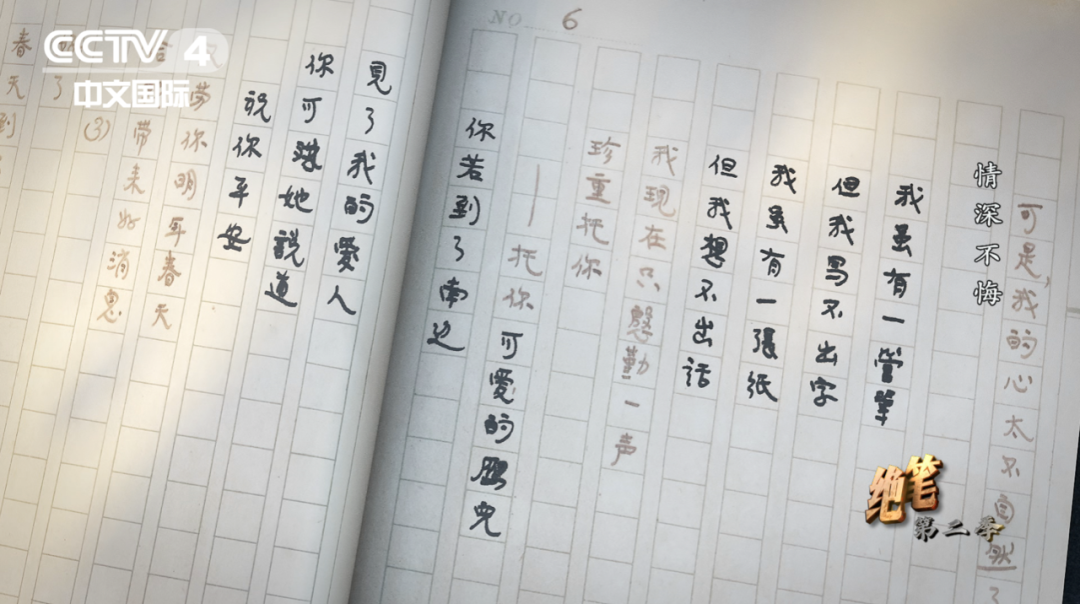 CCTV 4
中文国际
NO 6
可是，我的心太不自然了
情深不悔
我虽有一管筆
但我写不出字
我虽有一張紙
但我想不出话
我现在只慇勤一声
珍重托你
——托你可愛的雁兒
你若到了南边
見了我的愛人
你可她說道
祝你平安
劳你明年春天
带来好消息
(3)
了
春天到
绝笔
第二季